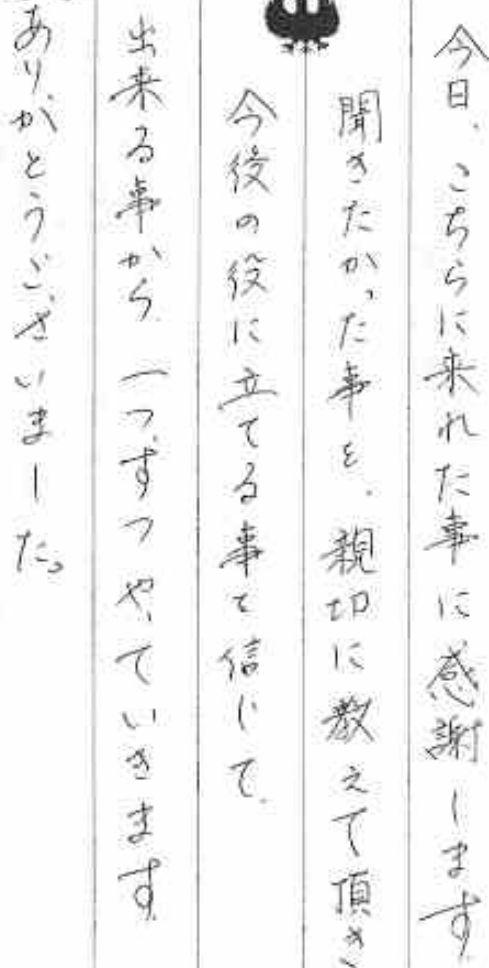 今日、こちらに来れた事に感謝します。
聞きたかった事を、親切に教えて頂き
今役の役に立てる事と信じて、
出来る事から、一つずつやっていきます。
ありがとうございました。